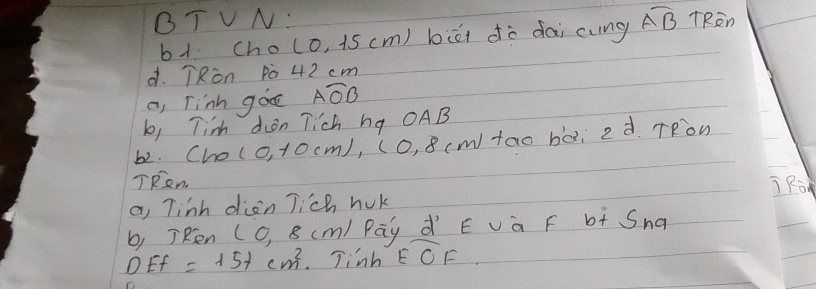 BTVN:
b1. Cho (O, 15 cm) biết độ dài cung AB TRên
đ. TRòn là 42 cm
a, Tính góc AOB
b, Tính diện Tích hq OAB
b2. Cho (O, 10 cm), (O, 8 cm) tạo bởi 2 đ. TRòn
TRên
a, Tính diện Tích hvk
b, TRên (O, 8 cm) lấy đ' E và F bt Shq
OEF = 151 cm². Tính EOF.
TRòn